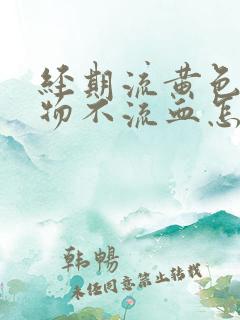 经期流黄色
物不流血怎
韩畅
未经同意禁止转载